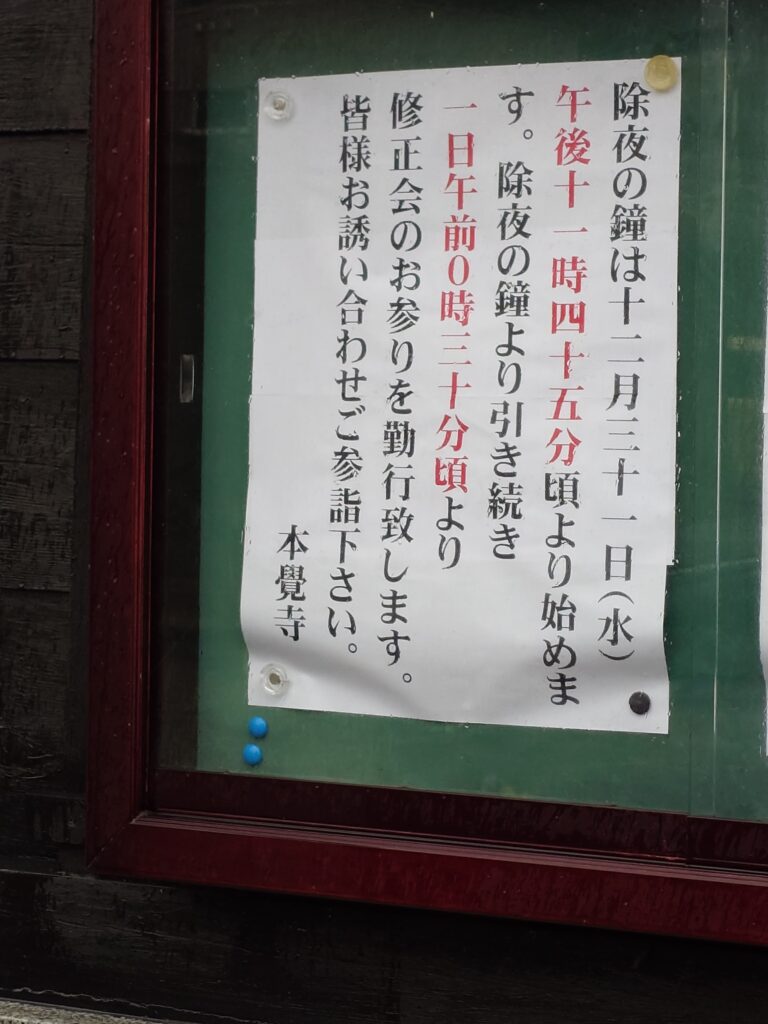 除夜の鐘は十二月三十一日(水)
午後十一時四十五分頃より始めま
す。除夜の鐘より引き続き
一日午前0時三十分頃より
修正会のお参りを勤行致します。
皆様お誘い合わせご参詣下さい。
本覺寺